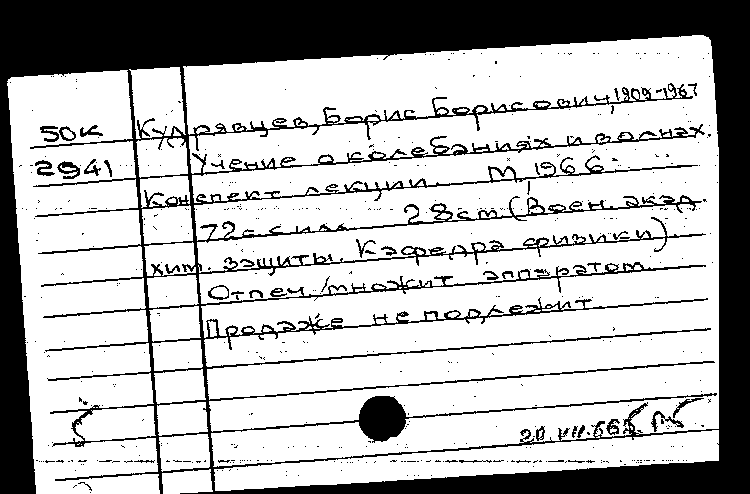 50к Кудрявцев, Борис Борисович, 1909-1967
2941 Учение о колебаниях и волнах.
Конспект лекции. М, 1966.
72 с с илл. 28 см. (Воен. акад.
хим. защиты. Кафедра физики).
Отпеч. множит. аппаратом.
Продаже не подлежит.
20.VII.66